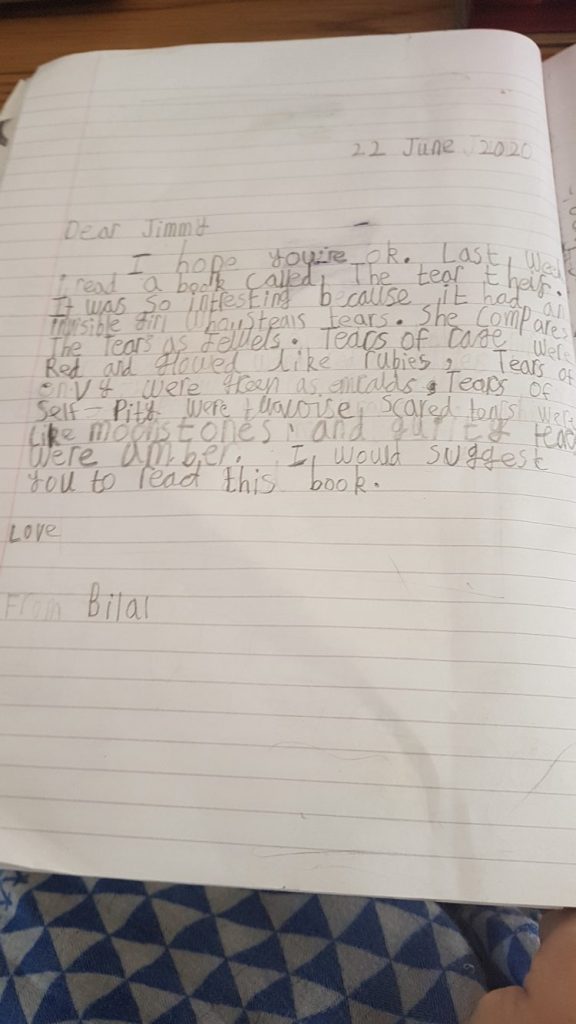 22 June 2020
Dear Jimmy
I hope you're ok. Last week
I read a book called, The tear theif.
It was so intresting because it had an
invisible girl who steals tears. She compares
The tears as Jewels. Tears of rage were
Red and glowed like rubies, Tears of
envy were green as emralds, Tears of
Self-Pity were turquoise, scared tears were
like moonstones, and guilty tears
were amber. I would suggest
you to read this book.
Love
From Bilal